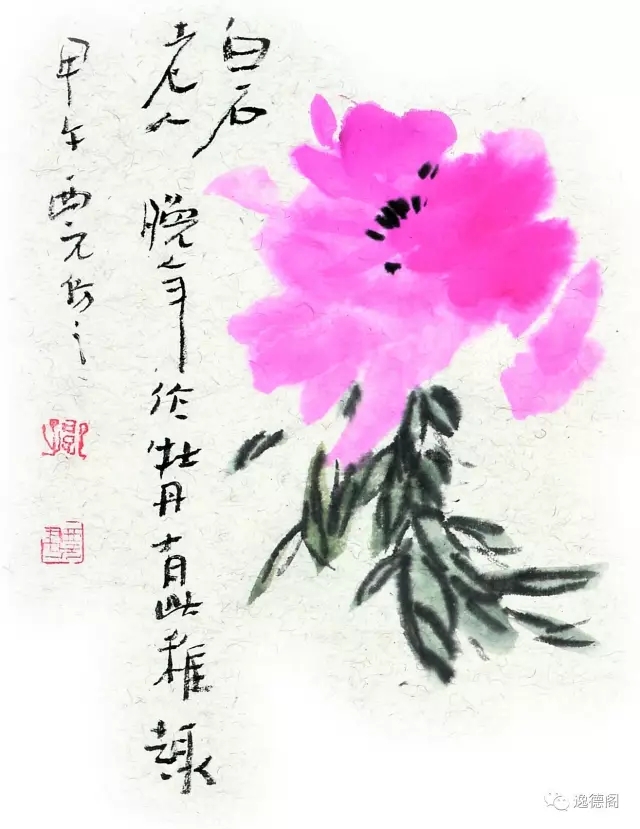 白石
老人晚年作牡丹有此稚趣
甲午西元仿之
逸德阁